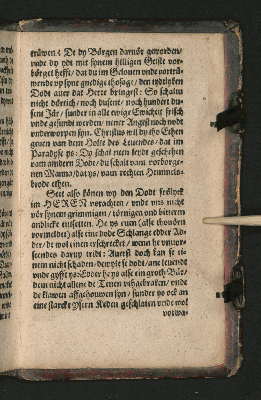 eruͤwen? De dy Boͤrgen darvoͤr geworden/
vnde dy ydt mit synem hilligen Geiste vor-
boͤrget hefft/ dat du im Gelouen vnde vortru-
wende vp syne gnedige thosage/ den tydtlyken
Dodt auer dat Herte bringest: So schaltu
nicht doͤrtich/ noch dusent/ noch hundert du-
sent Jar/ sunder in alle ewige Ewicheit frisch
vnde gesundt werden/ nener Angest noch nodt
vnderworpen syn. Christus wil dy tho Ethen
geuen van dem Holte des Leuendes/ dat im
Paradyse ys: Dy schal neen leydt geschehen
vam andern Dode/ du schalt vam vorborge-
nen Manna/ dat ys/ vam rechten Hemmels-
brode ethen.
also koͤnen wy den Dodt froͤlyck
im HEREN vorachten/ vnde vns nicht
voͤr synem grimmigen/ toͤrnigen vnd bitteren
andlicke entsetten. He ys euen (alse thouoͤrn
vormeldet) alse eine dode Slange edder Ad-
der/ de wol einen erschrecket/ wenn he vnuor-
seendes darup tridt: Auerst doch kan se ei-
nem nicht schaden/ dewyle se dodt/ ane leuende
vnde gyfft ys: Edder he ys alse ein groth Bar/
dem nicht allene de Tenen vthgebraken/ vnde
de Klawen affgehouwen syn/ sunder ys ock an
eine starcke ysern Keden geschlaten vnde wol
vorwa-